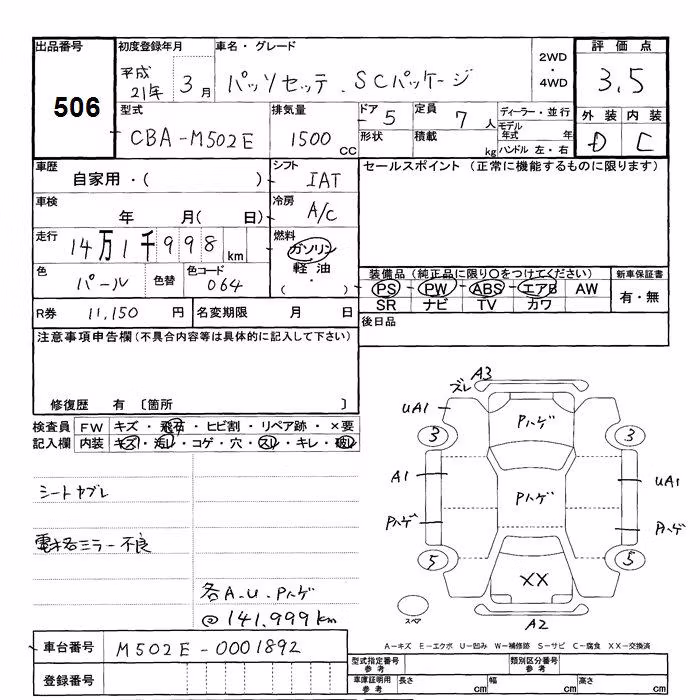 出品番号
506
初度登録年月
平成
21年 3月
車名・グレード
パッソセッテ . SCパッケージ
2WD
・
4WD
評価点
3.5
外装 内装
D C
型式
CBA-M502E
排気量
1500 CC
ドア 5
形状
定員 7 人
積載 kg
ディーラー・並行
モデル年式 年
ハンドル 左・右
車歴
自家用・( )
シフト
IAT
セールスポイント (正常に機能するものに限ります)
車検
年 月( 日)
冷房
A/C
走行
14万1千998 km
燃料
ガソリン
・
軽油
( ・ )
色
パール
色替
色コード
064
装備品 (純正品に限り○をつけてください)
PS PW ABS エアB AW
SR ナビ TV カワ
新車保証書
有・無
R券 11,150 円
名変期限 月 日
後日品
注意事項申告欄(不具合内容等は具体的に記入して下さい)
修復歴 有 〔箇所 〕
検査員記入欄
FW キズ・飛石・ヒビ割・リペア跡・×要
内装 キズ・汚レ・コゲ・穴・スレ・キレ・破レ
シートヤブレ
電格ミラー不良
各A.U.Pハゲ
@141.999km
ズレ A3
UA1
Pハゲ
3
3
A1
Pハゲ
UA1
Pハゲ
Pハゲ
5
5
XX
スペア
A2
A-キズ E-エクボ U-凹み W-補修跡 S-サビ C-腐食 XX-交換済
車台番号 M502E-0001892
登録番号
型式指定番号 参考
類別区分番号 参考
車庫証明用 参考
長さ cm
幅 cm
高さ cm